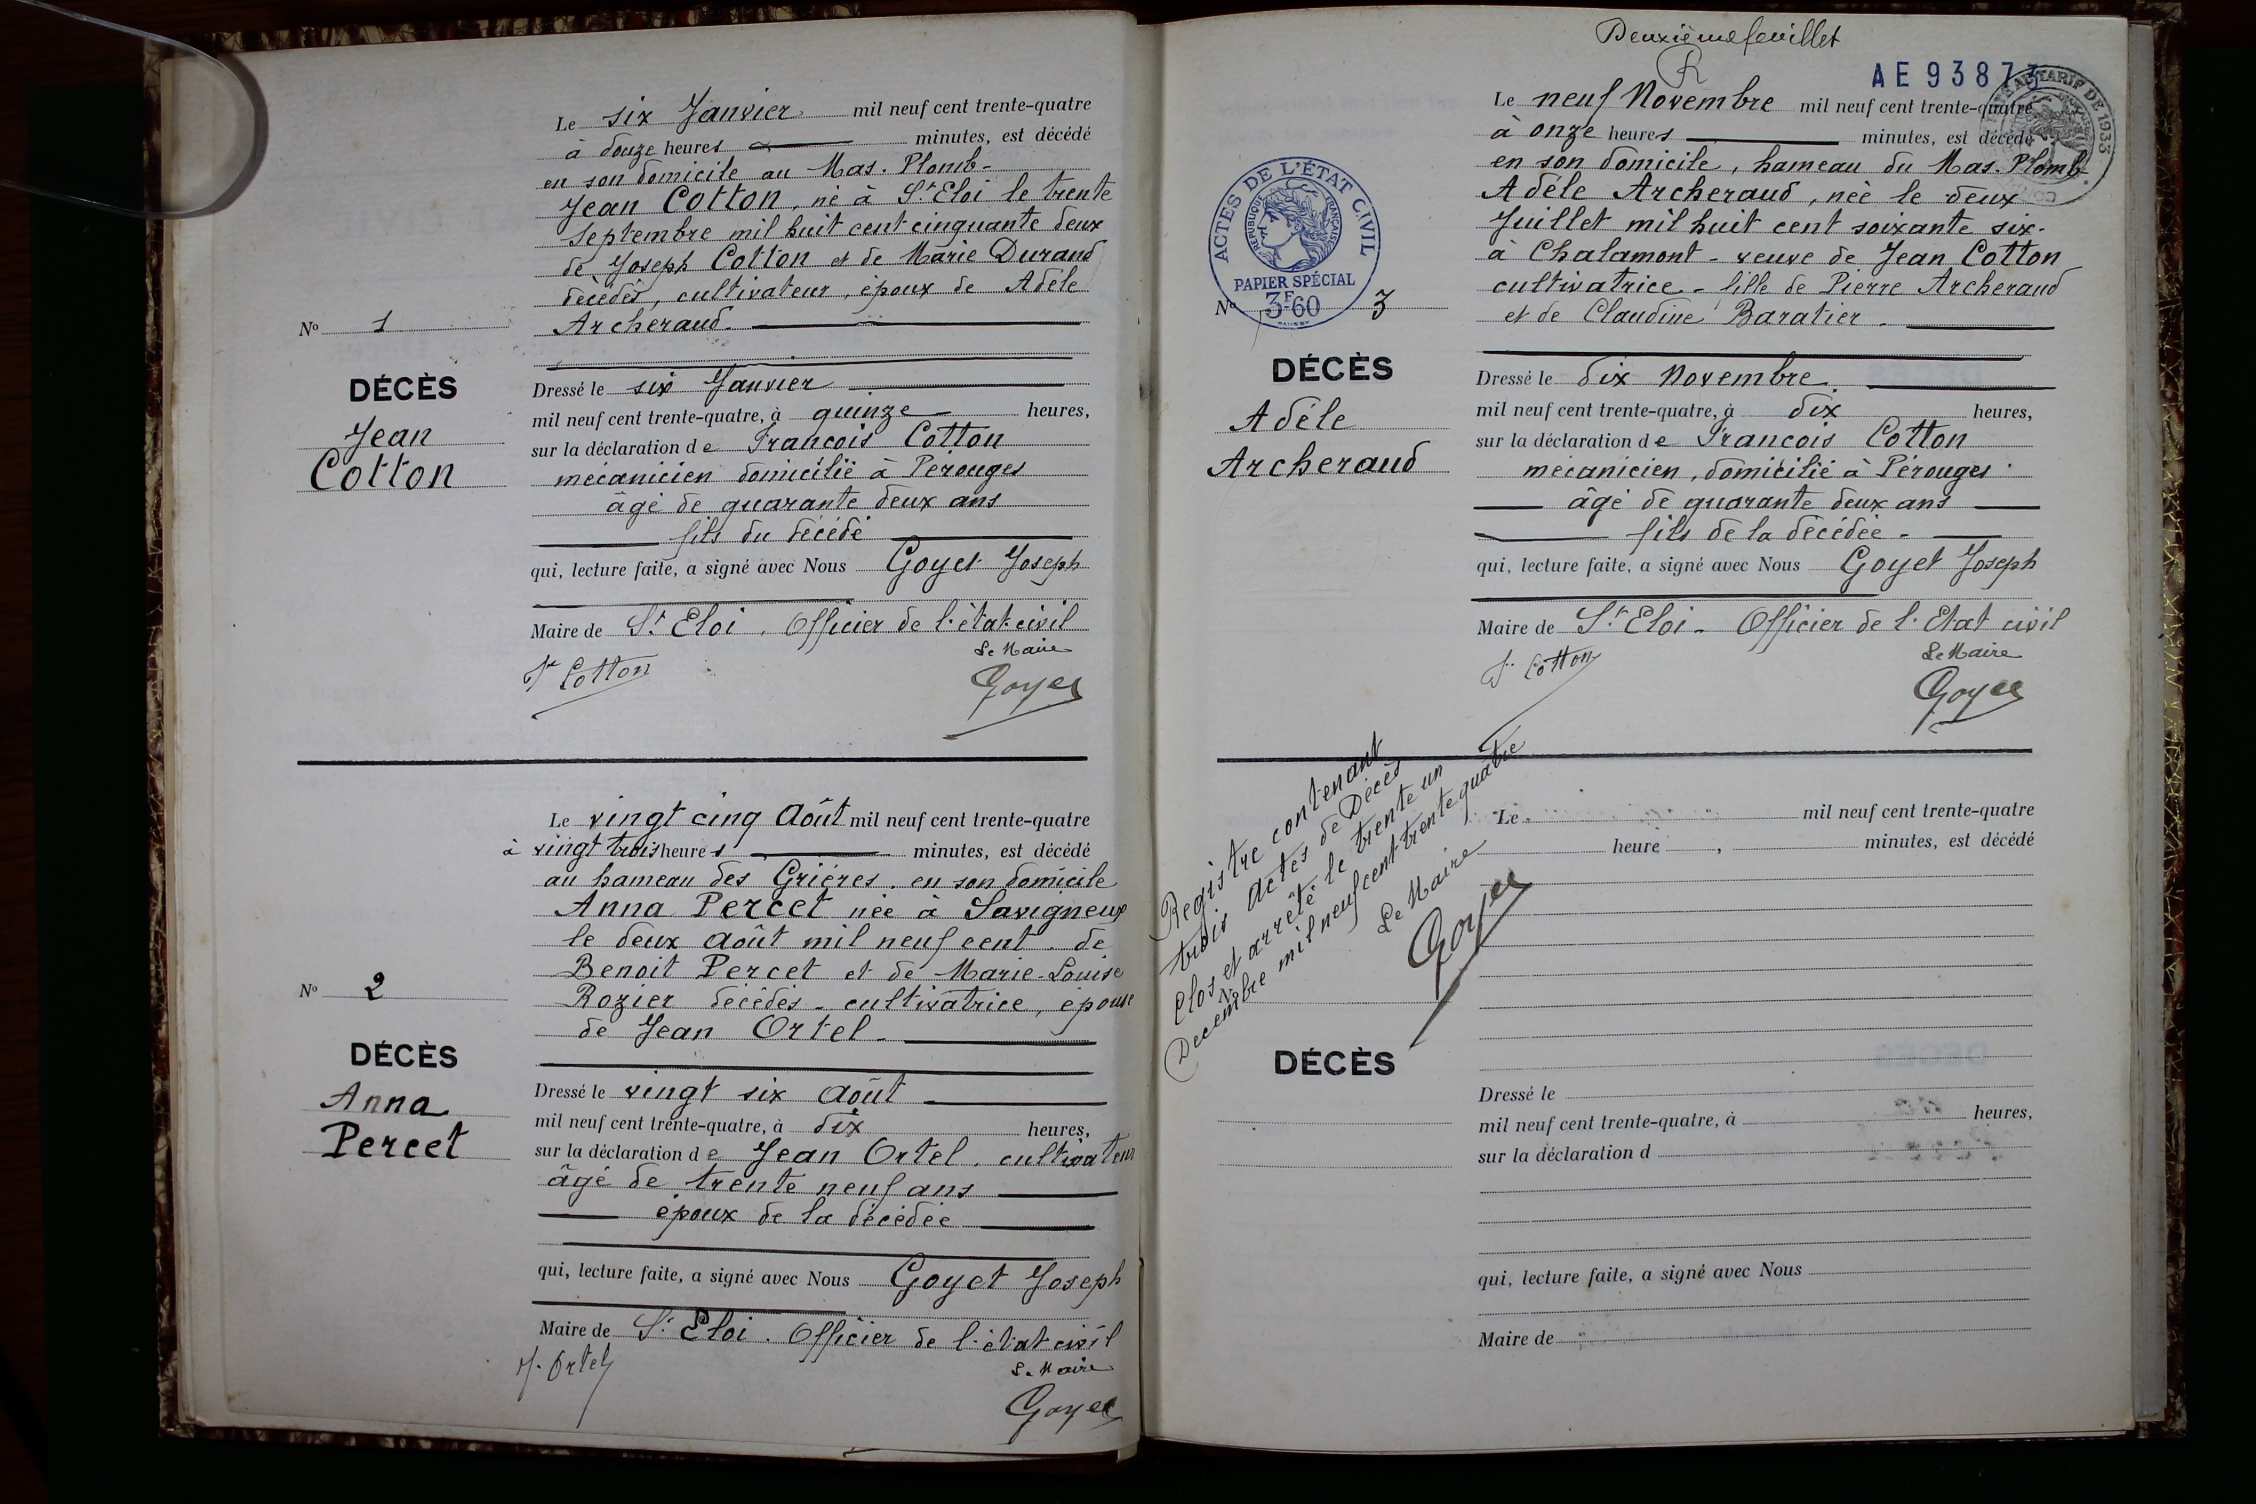 Le six Janvier mil neuf cent trente-quatre
à douze heures minutes, est décédé
en son domicile au Mas. Plomb-
Jean Cotton, né à St Eloi le trente
septembre mil huit cent cinquante deux
de Joseph Cotton et de Marie Durand
décédés, cultivateur, époux de Adèle
Archeraud.
No 1
DÉCÈS
Jean
Cotton
Dressé le six Janvier
mil neuf cent trente-quatre, à quinze heures,
sur la déclaration de François Cotton
mécanicien domicilié à Pérouges
âgé de quarante deux ans
fils du décédé
qui, lecture faite, a signé avec Nous Goyet Joseph
Maire de St Eloi. Officier de l'état-civil
Le Maire
Fr Cotton
Goyet
Le vingt cinq Août mil neuf cent trente-quatre
à vingt trois heures minutes, est décédé
au hameau des Grières. en son domicile
Anna Percet née à Savigneux
le deux Août mil neuf cent. de
Benoit Percet et de Marie-Louise
Rozier décédés - cultivatrice, épouse
de Jean Ortel.
No 2
DÉCÈS
Anna
Percet
Dressé le vingt six Août
mil neuf cent trente-quatre, à dix heures,
sur la déclaration de Jean Ortel. cultivateur
âgé de trente neuf ans
époux de la décédée
qui, lecture faite, a signé avec Nous Goyet Joseph
Maire de St Eloi. Officier de l'état civil
Le Maire
J. Ortel
Goyet
Deuxième feuillet
AE 93873
TARIF DE 1933
Le neuf Novembre mil neuf cent trente-quatre
à onze heures minutes, est décédé
en son domicile, hameau du Mas. Plomb
Adèle Archeraud, née le deux
Juillet mil huit cent soixante six.
à Chalamont - veuve de Jean Cotton
cultivatrice - fille de Pierre Archeraud
et de Claudine Baratier.
ACTES DE L'ÉTAT CIVIL
RÉPUBLIQUE FRANÇAISE
PAPIER SPÉCIAL
3F60
No 3
DÉCÈS
Adèle
Archeraud
Dressé le dix Novembre
mil neuf cent trente-quatre, à dix heures,
sur la déclaration de François Cotton
mécanicien, domicilié à Pérouges
âgé de quarante deux ans
fils de la décédée -
qui, lecture faite, a signé avec Nous Goyet Joseph
Maire de St Eloi - Officier de l'Etat civil
Le Maire
Fr Cotton
Goyet
Registre contenant
trois actes de Décès
clos et arrêté le trente un
Décembre mil neuf cent trente quatre
Le Maire
Goyet
Le mil neuf cent trente-quatre
heure , minutes, est décédé
No
DÉCÈS
Dressé le
mil neuf cent trente-quatre, à heures,
sur la déclaration d
qui, lecture faite, a signé avec Nous
Maire de